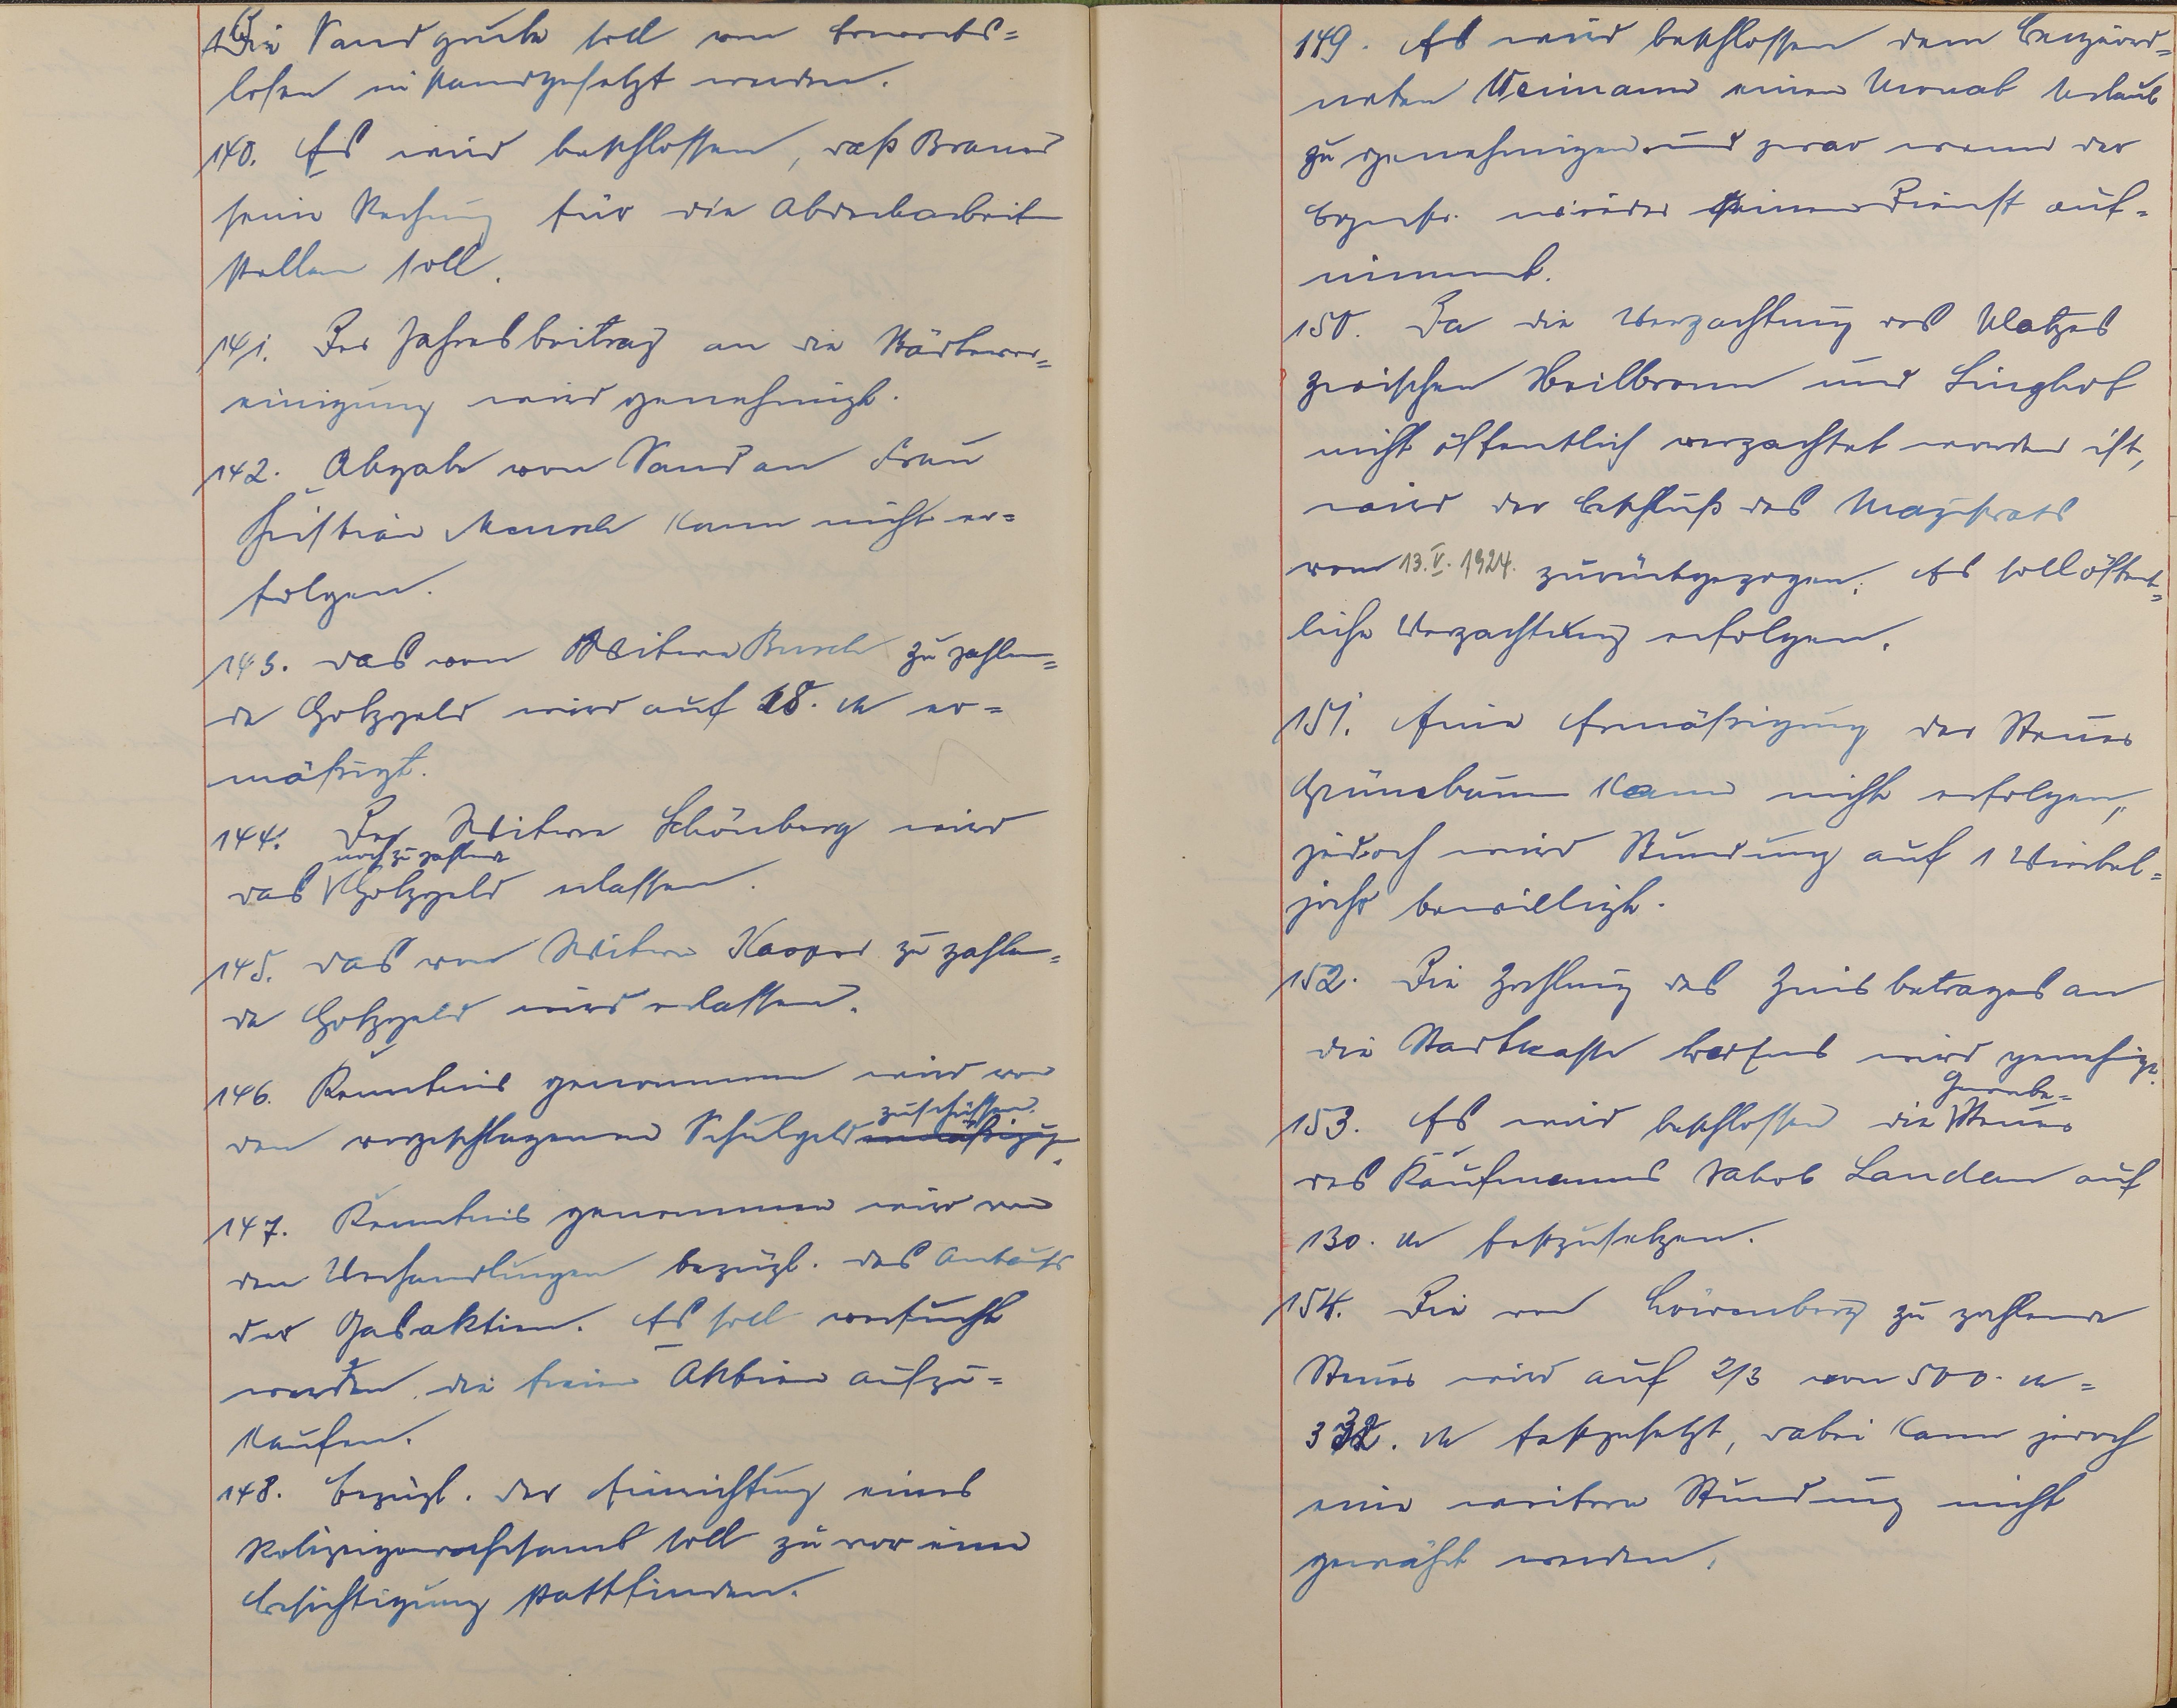 Die Sandgrube soll von Erwerbs=
losen in stand gesetzt werden.
140. Es wird beschlossen, daß Brauer
seine Rechnung für die Abdeckarbeit
stellen soll.
141. Der Jahresbeitrag an die Städtever=
einigung wird genehmigt.
142. Abgabe von Sand an Frau
Christian Mensch kann nicht er=
folgen.
143. das von Witwe Busch zu zahlen=
de Holzgeld wird auf 18. M er=
mäßigt.
144. Der Witwe Schönberg wird
noch zu zahlende
das Holzgeld erlassen.
145. das von Witwe Kasper zu zahlen=
de Holzgeld wird erlassen.
146. Kenntnis genommen wird von
zuschüssen.
den vorgeschlagenen Schulgeld
147. Kenntnis genommen wird von
den Verhandlungen bezügl. des Ankaufs
der Gasaktien. Es soll versucht
werden, die freien Aktien aufzu=
kaufen.
148. Bezügl. der Einrichtung eines
Polizeigewahrsams soll zu vor eine
Besichtigung stattfinden.
149. Es wird beschlossen dem Beigeord=
neten Weimann einen Monat Urlaub
zu genehmigen und zwar wenn der
Bgmstr. wieder seinen Dienst auf=
nimmt.
150. Da die Verpachtung des Platzes
zwischen Heilbronn und Linghof
nicht öffentlich verpachtet worden ist,
wird der Beschluß des Magistrats
vom 13.V.1924. zurückgezogen. Es soll öffent=
liche Verpachtung erfolgen.
151. Eine Ermäßigung der Steuer
Grünebaum kann nicht erfolgen,
jedoch wird Stundung auf 1 Viertel=
jahr bewilligt.
152. Die Zahlung des Zinsbetrages an
die Stadtkasse wird genehmigt.
Gewerbe=
153. Es wird beschlossen die Steuer
des Kaufmanns Jakob Landau auf
130. M festzusetzen.
154. Die von Löwenberg zu zahlende
Steuer wird auf 2/3 von 500. M =
332. M festgesetzt, dabei kann jedoch
eine weitere Stundung nicht
gewährt werden.